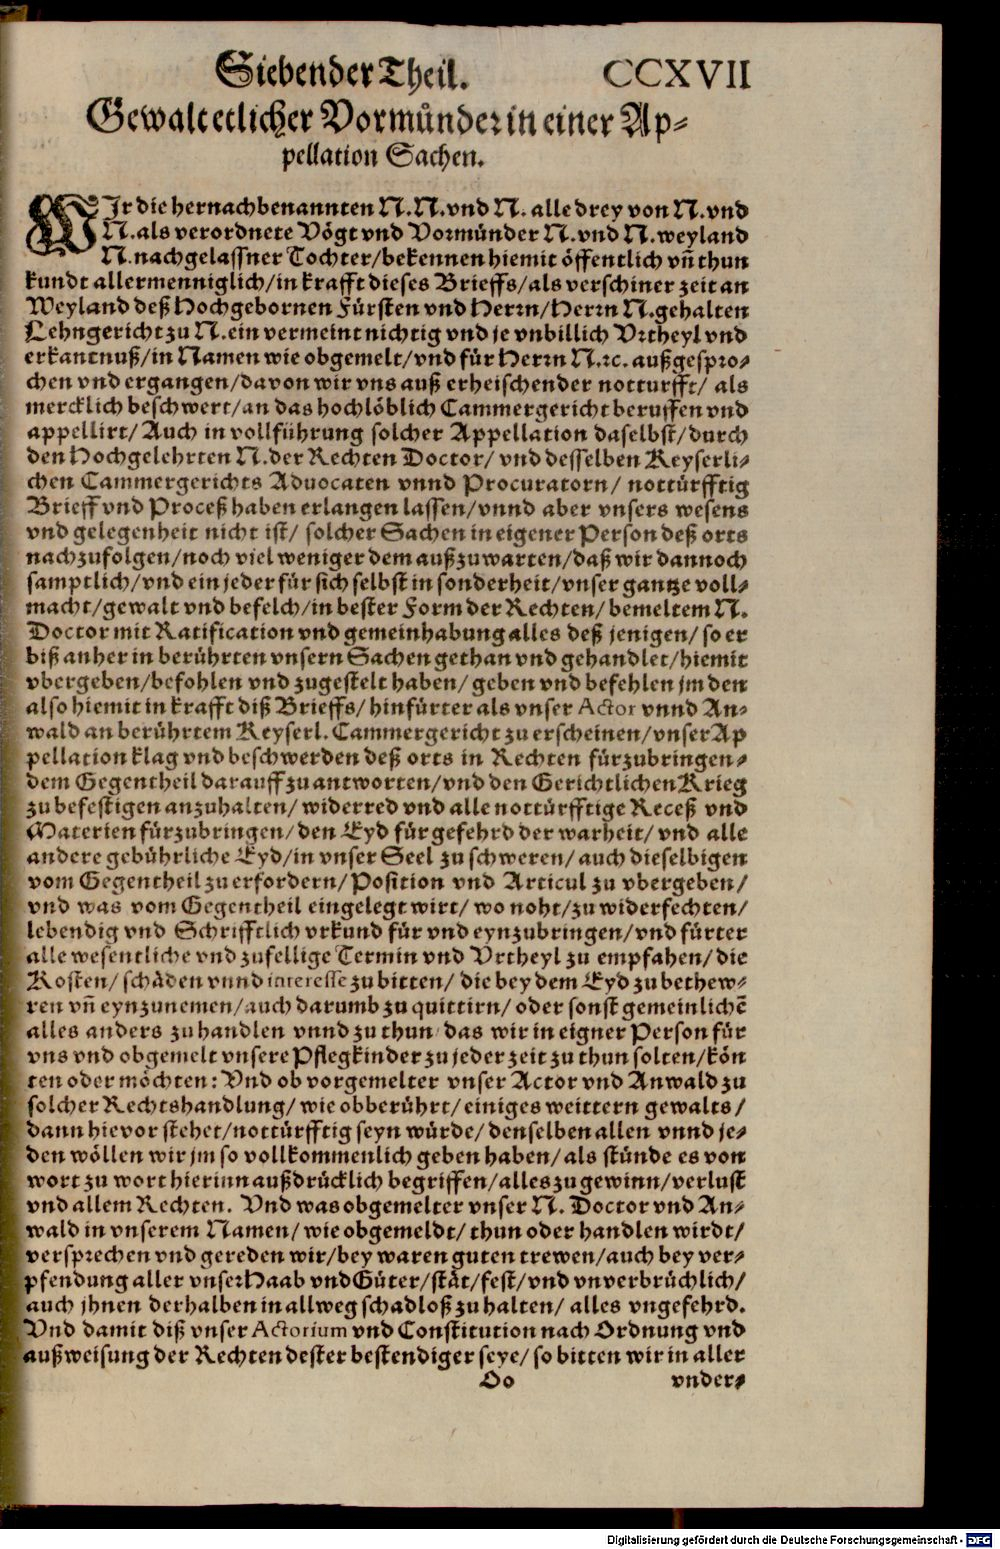 Siebender Theil. CCXVII
Gewalt etlicher Vormünder in einer Ap-
pellation Sachen.
WIr die hernachbenannten N. N. vnd N. alle drey von N. vnd
N. als verordnete Vögt vnd Vormünder N. vnd N. weyland
N. nachgelassner Tochter/ bekennen hiemit öffentlich vn̄ thun
kundt allermenniglich/ in krafft dieses Brieffs/ als verschiner zeit an
Weyland deß Hochgebornen Fürsten vnd Herrn/ Herrn N. gehalten
Lehngericht zu N. ein vermeint nichtig vnd je vnbillich Vrtheyl vnd
erkantnuß/ in Namen wie obgemelt/ vnd für Herrn N. ꝛc. außgespro-
chen vnd ergangen/ davon wir vns auß erheischender notturfft/ als
mercklich beschwert/ an das hochlöblich Cammergericht beruffen vnd
appellirt/ Auch in vollführung solcher Appellation daselbst/ durch
den Hochgelehrten N. der Rechten Doctor/ vnd desselben Keyserli-
chen Cammergerichts Aduocaten vnnd Procuratorn/ nottürfftig
Brieff vnd Proceß haben erlangen lassen/ vnnd aber vnsers wesens
vnd gelegenheit nicht ist/ solcher Sachen in eigener Person deß orts
nachzufolgen/ noch viel weniger dem außzuwarten/ daß wir dannoch
samptlich/ vnd ein jeder für sich selbst in sonderheit/ vnser gantze voll-
macht/ gewalt vnd befelch/ in bester Form der Rechten/ bemeltem N.
Doctor mit Ratification vnd gemeinhabung alles deß jenigen/ so er
biß anher in berührten vnsern Sachen gethan vnd gehandlet/ hiemit
vbergeben/ befohlen vnd zugestelt haben/ geben vnd befehlen jm den
also hiemit in krafft diß Brieffs/ hinfürter als vnser Actor vnnd An-
wald an berührtem Keyserl. Cammergericht zu erscheinen/ vnser Ap
pellation klag vnd beschwerden deß orts in Rechten fürzubringen-
dem Gegentheil darauff zu antworten/ vnd den Gerichtlichen Krieg
zu befestigen anzuhalten/ widerred vnd alle nottürfftige Receß vnd
Materien fürzubringen/ den Eyd für gefehrd der warheit/ vnd alle
andere gebührliche Eyd/ in vnser Seel zu schweren/ auch dieselbigen
vom Gegentheil zu erfordern/ Position vnd Articul zu vbergeben/
vnd was vom Gegentheil eingelegt wirt/ wo noht/ zu widerfechten/
lebendig vnd Schrifftlich vrkund für vnd eynzubringen/ vnd fürter
alle wesentliche vnd zufellige Termin vnd Vrtheyl zu empfahen/ die
Kosten/ schäden vnnd interesse zu bitten/ die bey dem Eyd zu bethew-
ren vn̄ eynzunemen/ auch darumb zu quittirn/ oder sonst gemeinlichē
alles anders zu handlen vnnd zu thun/ das wir in eigner Person für
vns vnd obgemelt vnsere Pflegkinder zu jeder zeit zu thun solten/ kön
ten oder möchten: Vnd ob vorgemelter vnser Actor vnd Anwald zu
solcher Rechtshandlung/ wie obberührt/ einiges weittern gewalts/
dann hievor stehet/ nottürfftig seyn würde/ denselben allen vnnd je-
den wöllen wir jm so vollkommenlich geben haben/ als stünde es von
wort zu wort hierinn außdrücklich begriffen/ alles zu gewinn/ verlust
vnd allem Rechten. Vnd was obgemelter vnser N. Doctor vnd An-
wald in vnserem Namen/ wie obgemeldt/ thun oder handlen wirdt/
versprechen vnd gereden wir/ bey waren guten trewen/ auch bey ver-
pfendung aller vnser Haab vnd Güter/ stät/ fest/ vnd vnverbrüchlich/
auch jhnen derhalben in allweg schadloß zu halten/ alles vngefehrd.
Vnd damit diß vnser Actorium vnd Constitution nach Ordnung vnd
außweisung der Rechten dester bestendiger seye/ so bitten wir in aller
Oo vnder-
Digitalisierung gefördert durch die Deutsche Forschungsgemeinschaft - DFG